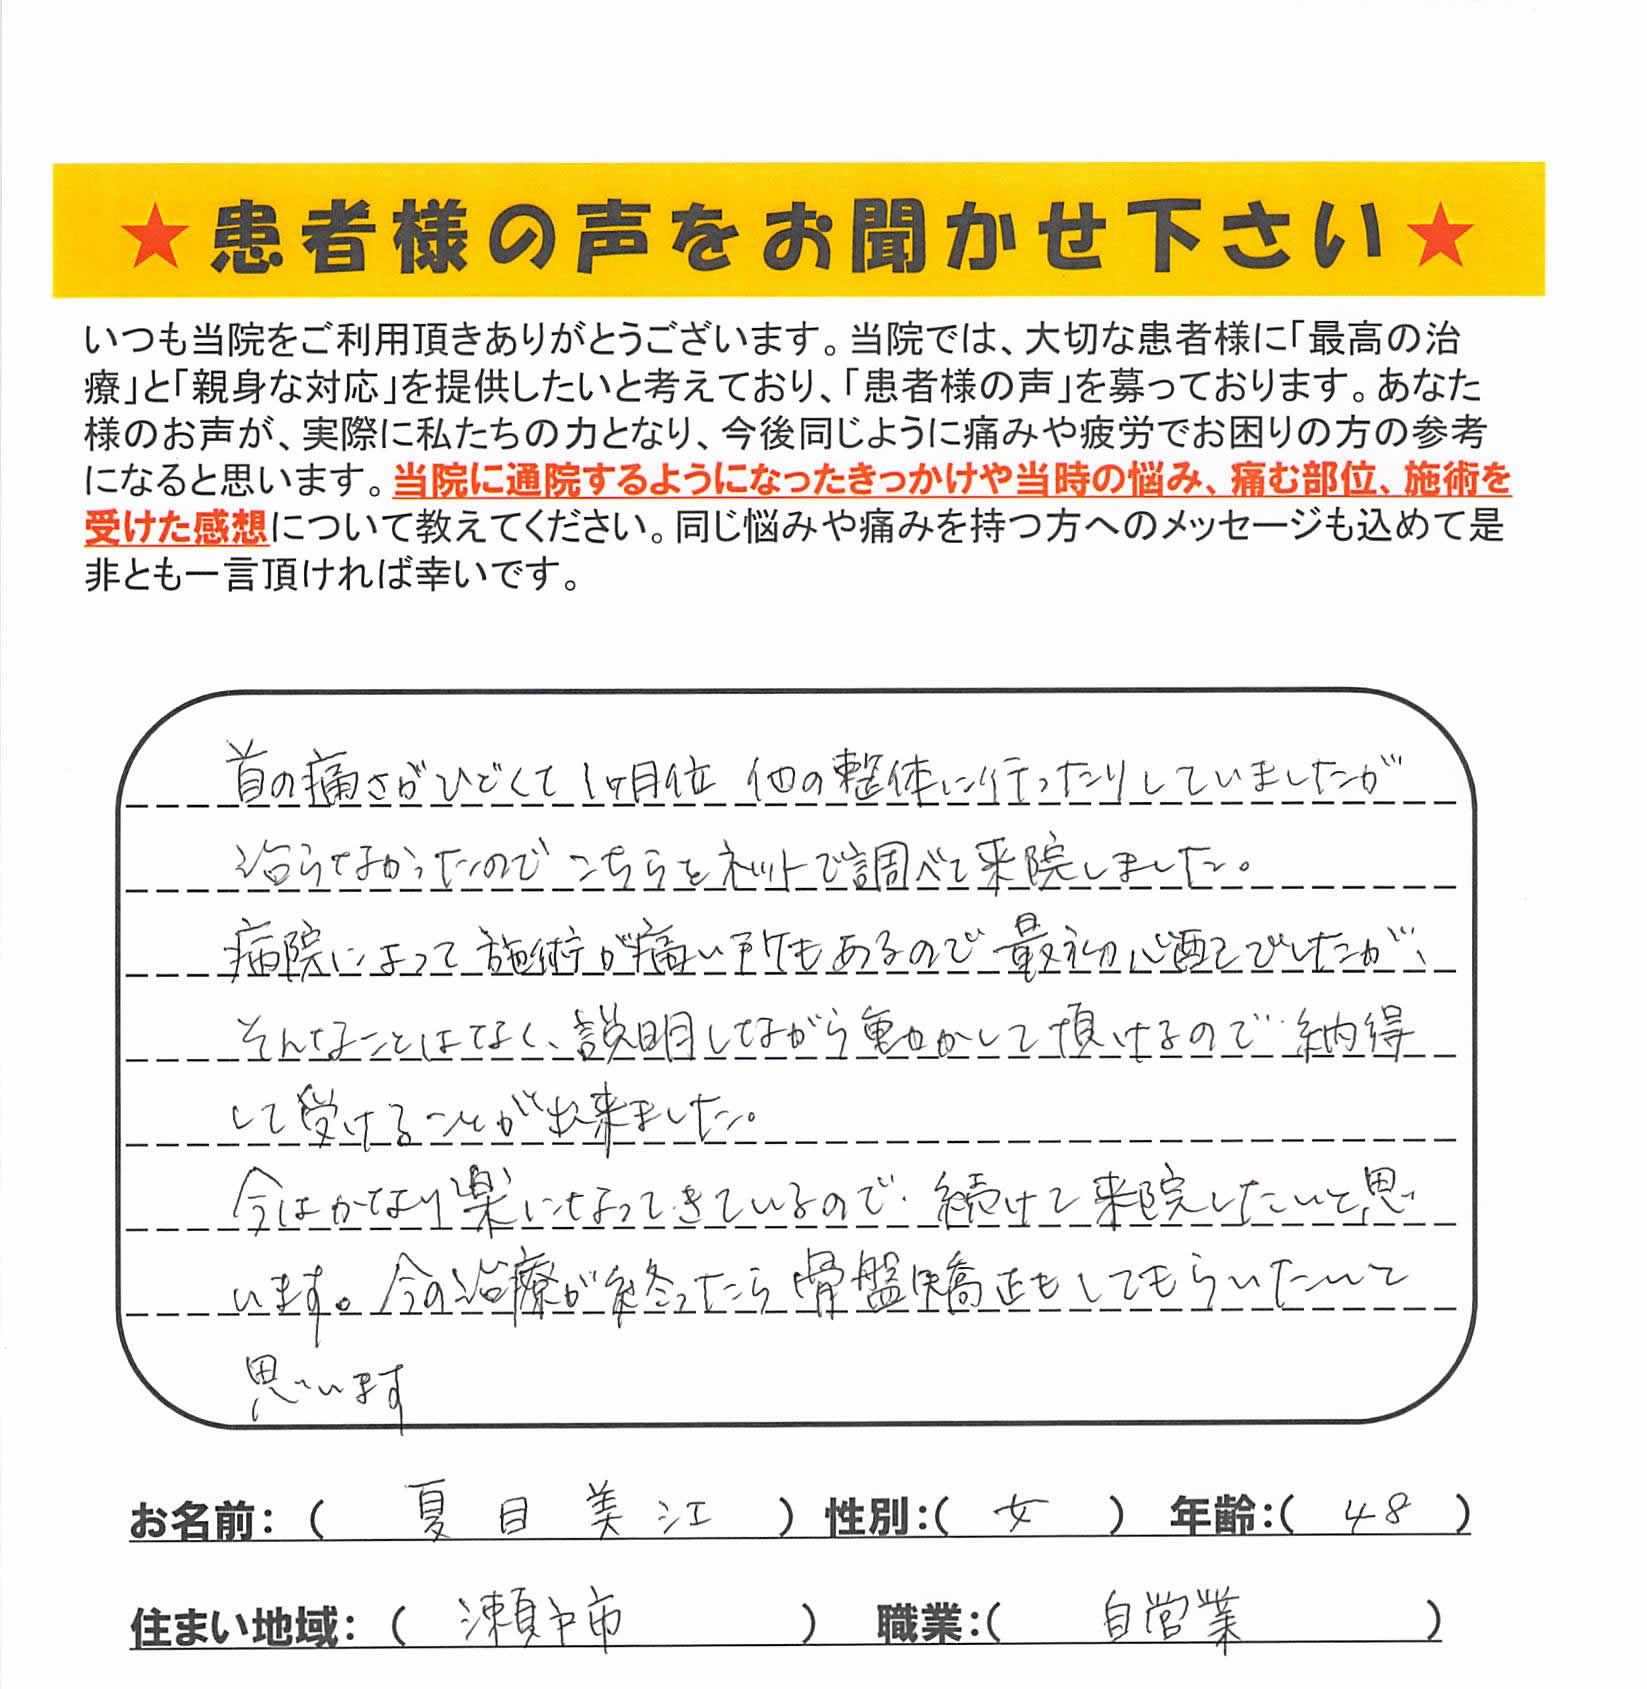 ★患者様の声をお聞かせ下さい★
いつも当院をご利用頂きありがとうございます。当院では、大切な患者様に「最高の治
療」と「親身な対応」を提供したいと考えており、「患者様の声」を募っております。あなた
様のお声が、実際に私たちの力となり、今後同じように痛みや疲労でお困りの方の参考
になると思います。当院に通院するようになったきっかけや当時の悩み、痛む部位、施術を
受けた感想について教えてください。同じ悩みや痛みを持つ方へのメッセージも込めて是
非とも一言頂ければ幸いです。
首の痛さがひどくて1ヶ月位 他の整体に行ったりしていましたが
治らなかったのでこちらをネットで調べて来院しました。
病院によって施術が痛い所もあるので最初心配でしたが、
そんなことはなく、説明しながら動かして頂けるので納得
して受けることが出来ました。
今はかなり楽になってきているので、続けて来院したいと思い
います。今の治療が終ったら骨盤矯正もしてもらいたいと
思います
お名前:( 夏目美江 ) 性別:( 女 ) 年齢:( 48 )
住まい地域:( 瀬戸市 ) 職業:( 自営業 )